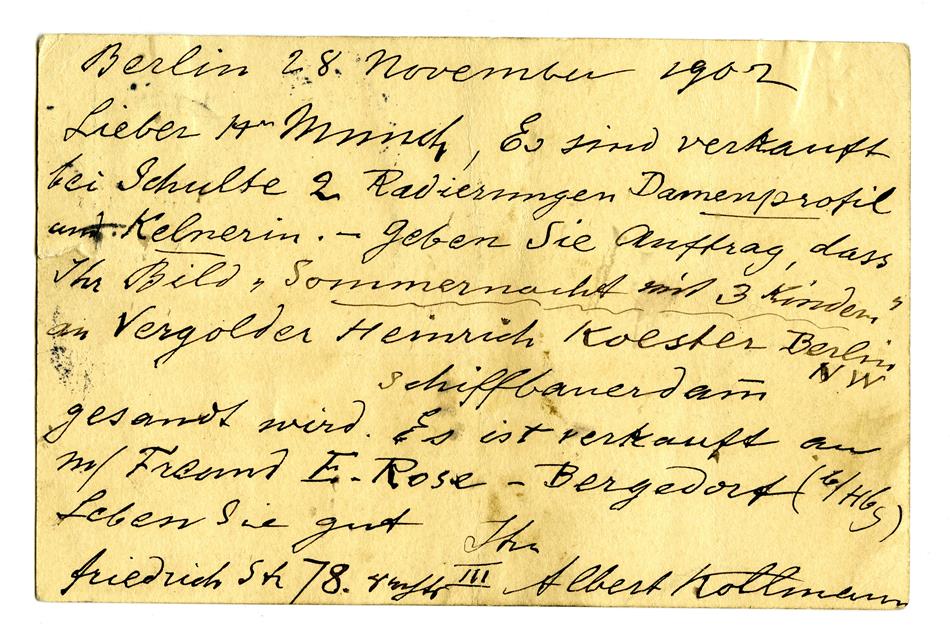 Berlin 28. November 1902
Lieber Hrn Munch, Es sind verkauft
bei Schulte 2 Radierungen Damenprofil
und Kelnerin. – Geben Sie Auftrag, dass
Ihr Bild „Sommernacht mit 3 Kindern"
an Vergolder Heinrich Koester Berlin
NW
Schiffbauerdam̅
gesandt wird. Es ist verkauft an
m/ Freund E. Rose – Bergedorf (b/Hbg)
Leben Sie gut
Ihr
friedrich Str 78. III Albert Kollmann